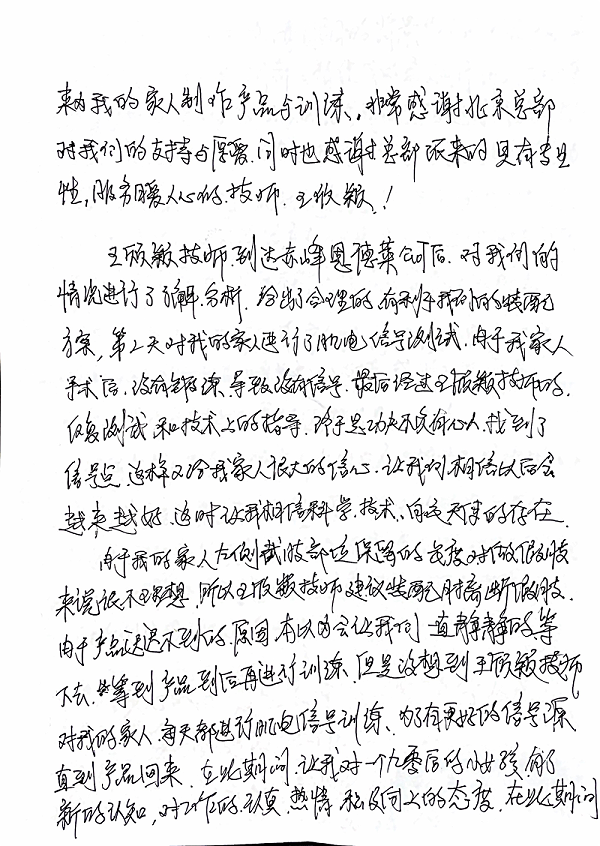 来为我的家人制作产品与训练,非常感谢北京总部
对我们的支持与保爱,同时也感谢总部派来的具有专业
性,服务暖人心的.技师.王欣颖!
王欣颖技师.到达赤峰恩德莱公司后.对我们的
情况进行了了解.分析.给出了合理的.有利于我们的装配
方案,第2天对我的家人进行了肌电信号测试.由于我家人
手术后.没有锻炼.导致没有信号.最后经过王欣颖技师的.
反复测试和技术上的指导.终于是功夫不负有心人.找到了
信号点.这样又给我家人很大的信心.让我们相信以后会
越来越好.这时让我相信科学.技术.的存在.
由于我的家人左侧截肢部位保留的长度对做假肢
来说很不理想.所以王欣颖技师建议装配肘离断假肢.
由于产品迟迟不到的.原因.本以为会让我们一直静静的等
下去.等到产品到后再进行训练.但是没想到王欣颖技师
对我的家人.每天都进行肌电信号训练、为了有更好的信号源
直到产品回来.在此期间.让我对一个九零后的小女孩.有了
新的认知,对工作的.认真.热情.积极向上的态度.在此期间